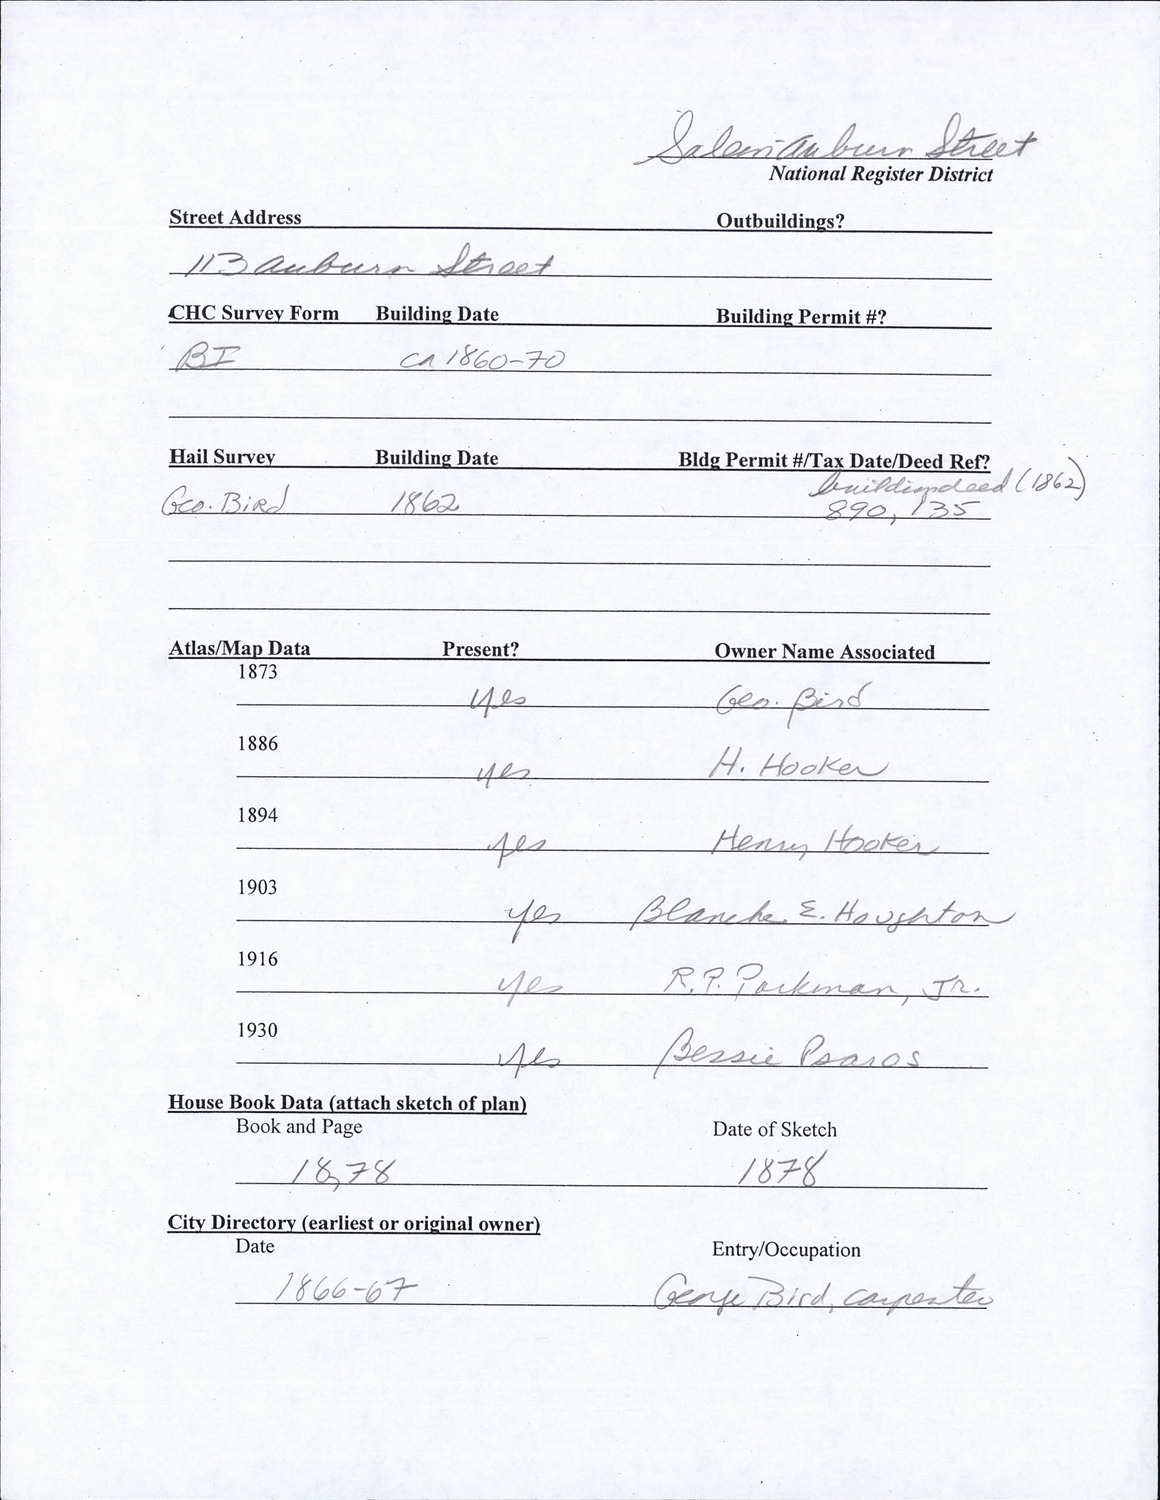 Salem Auburn Street
National Register District
Street Address Outbuildings?
113 Auburn Street
CHC Survey Form Building Date Building Permit #?
BI ca 1860-70
Hail Survey Building Date Bldg Permit #/Tax Date/Deed Ref?
building deed (1862)
Geo. Bird 1862 890, 135
Atlas/Map Data Present? Owner Name Associated
1873
yes Geo. Bird
1886
yes H. Hooker
1894
yes Henry Hooker
1903
yes Blanche E. Houghton
1916
yes R.P. Parkman, Jr.
1930
yes Bessie Psaros
House Book Data (attach sketch of plan)
Book and Page Date of Sketch
18,78 1878
City Directory (earliest or original owner)
Date Entry/Occupation
1866-67 George Bird, carpenter